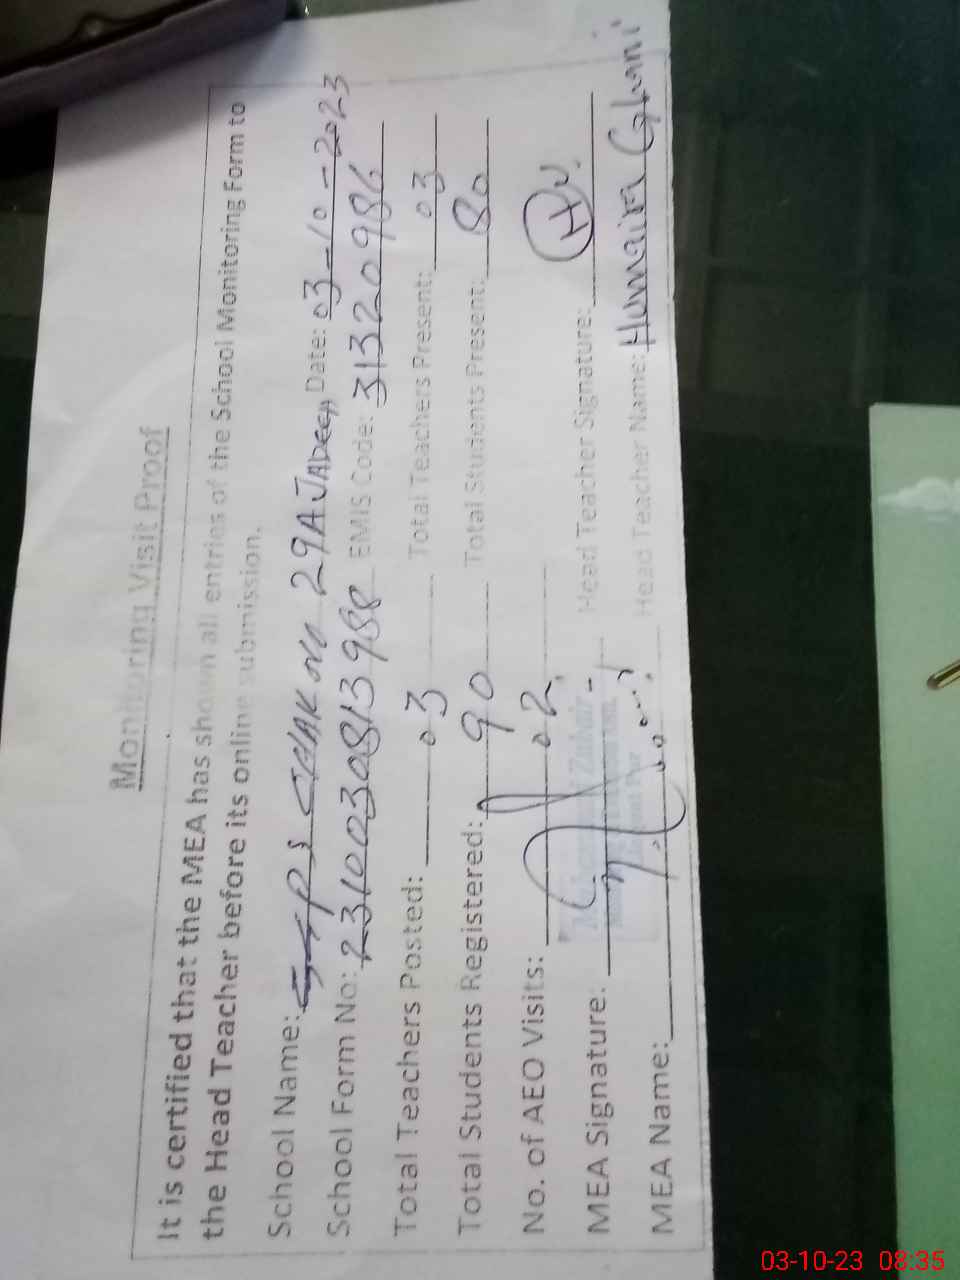 Monitoring Visit Proof
It is certified that the MEA has shown all entries of the School Monitoring Form to
the Head Teacher before its online submission.
School Name: GGPS CHAK NO 29A JADEED Date: 03-10-2023
School Form No: 2310030813988 EMIS Code: 31320986
Total Teachers Posted: 03 Total Teachers Present: 03
Total Students Registered: 90 Total Students Present: 80
No. of AEO Visits: 02
MEA Signature: Head Teacher Signature:
MEA Name: Head Teacher Name: Humaira Ghani
03-10-23 08:35